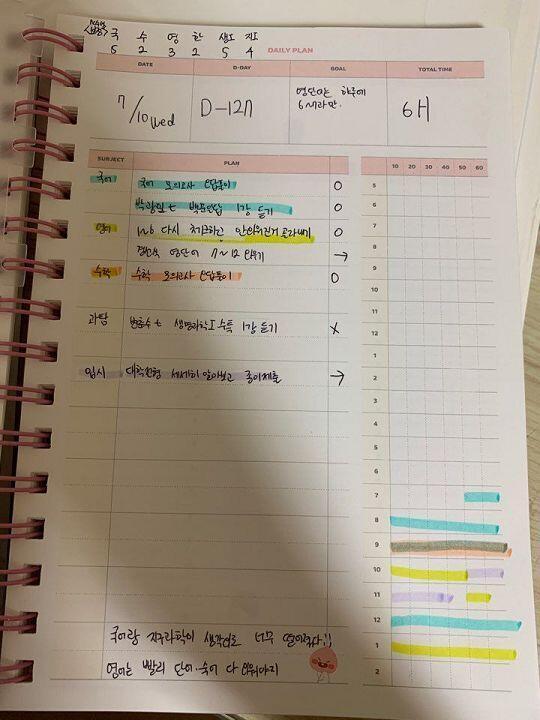 국 수 영 한 생1 지1
5 2 3 2 5 4
DAILY PLAN
DATE D-DAY GOAL TOTAL TIME
7/10 Wed
D-127
영단어는 하루에
6H
SUBJECT PLAN
국어 국어 모의고사 오답풀이 O
1강 듣기 O
영어 1~6 다시 체크하고 안외워진거 골라내기 O
영단어 7~12 외우기 →
수학 수학 모의고사 오답풀이 O
과탐 생명과학I 수특 1강 듣기 X
입시 대학전형 세세히 알아보고 종이제출 →
10 20 30 40 50 60
5
6
7
8
9
10
11
12
1
2
3
4
5
6
7
8
9
10
11
12
1
2
국어랑 지구과학이 생각보다 너무 떨어졌다!!
영어는 빨리 단어·숙어 다 외워야지